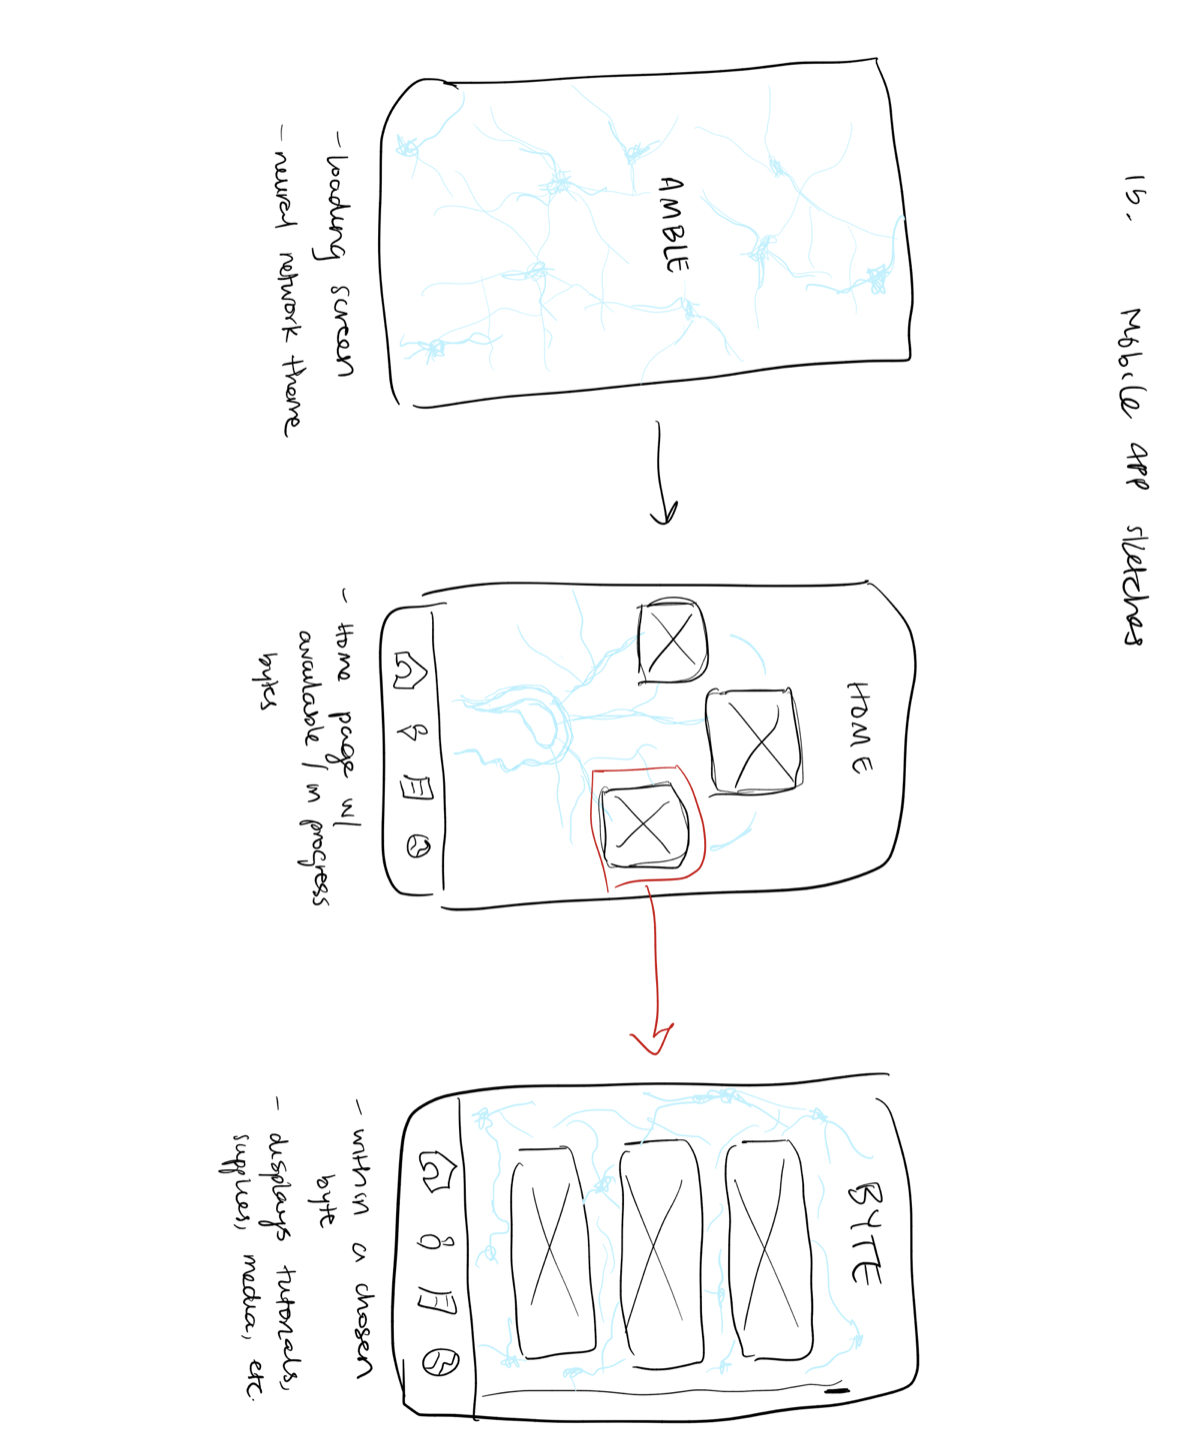 15. Mobile app sketches
AMBLE
- loading screen
- neural network theme
HOME
- Home page w/
available / in progress
bytes
BYTE
- within a chosen
byte
- displays tutorials,
supplies, media, etc.